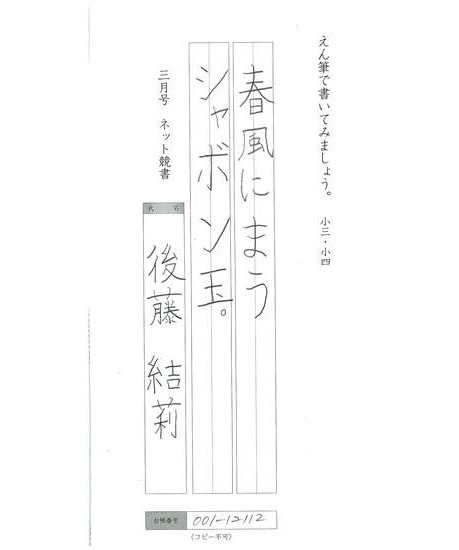 えん筆で書いてみましょう。 小三・小四
春風にまう
シャボン玉。
三月号 ネット競書
氏名
後藤 結莉
台帳番号 001-12112
(コピー不可)